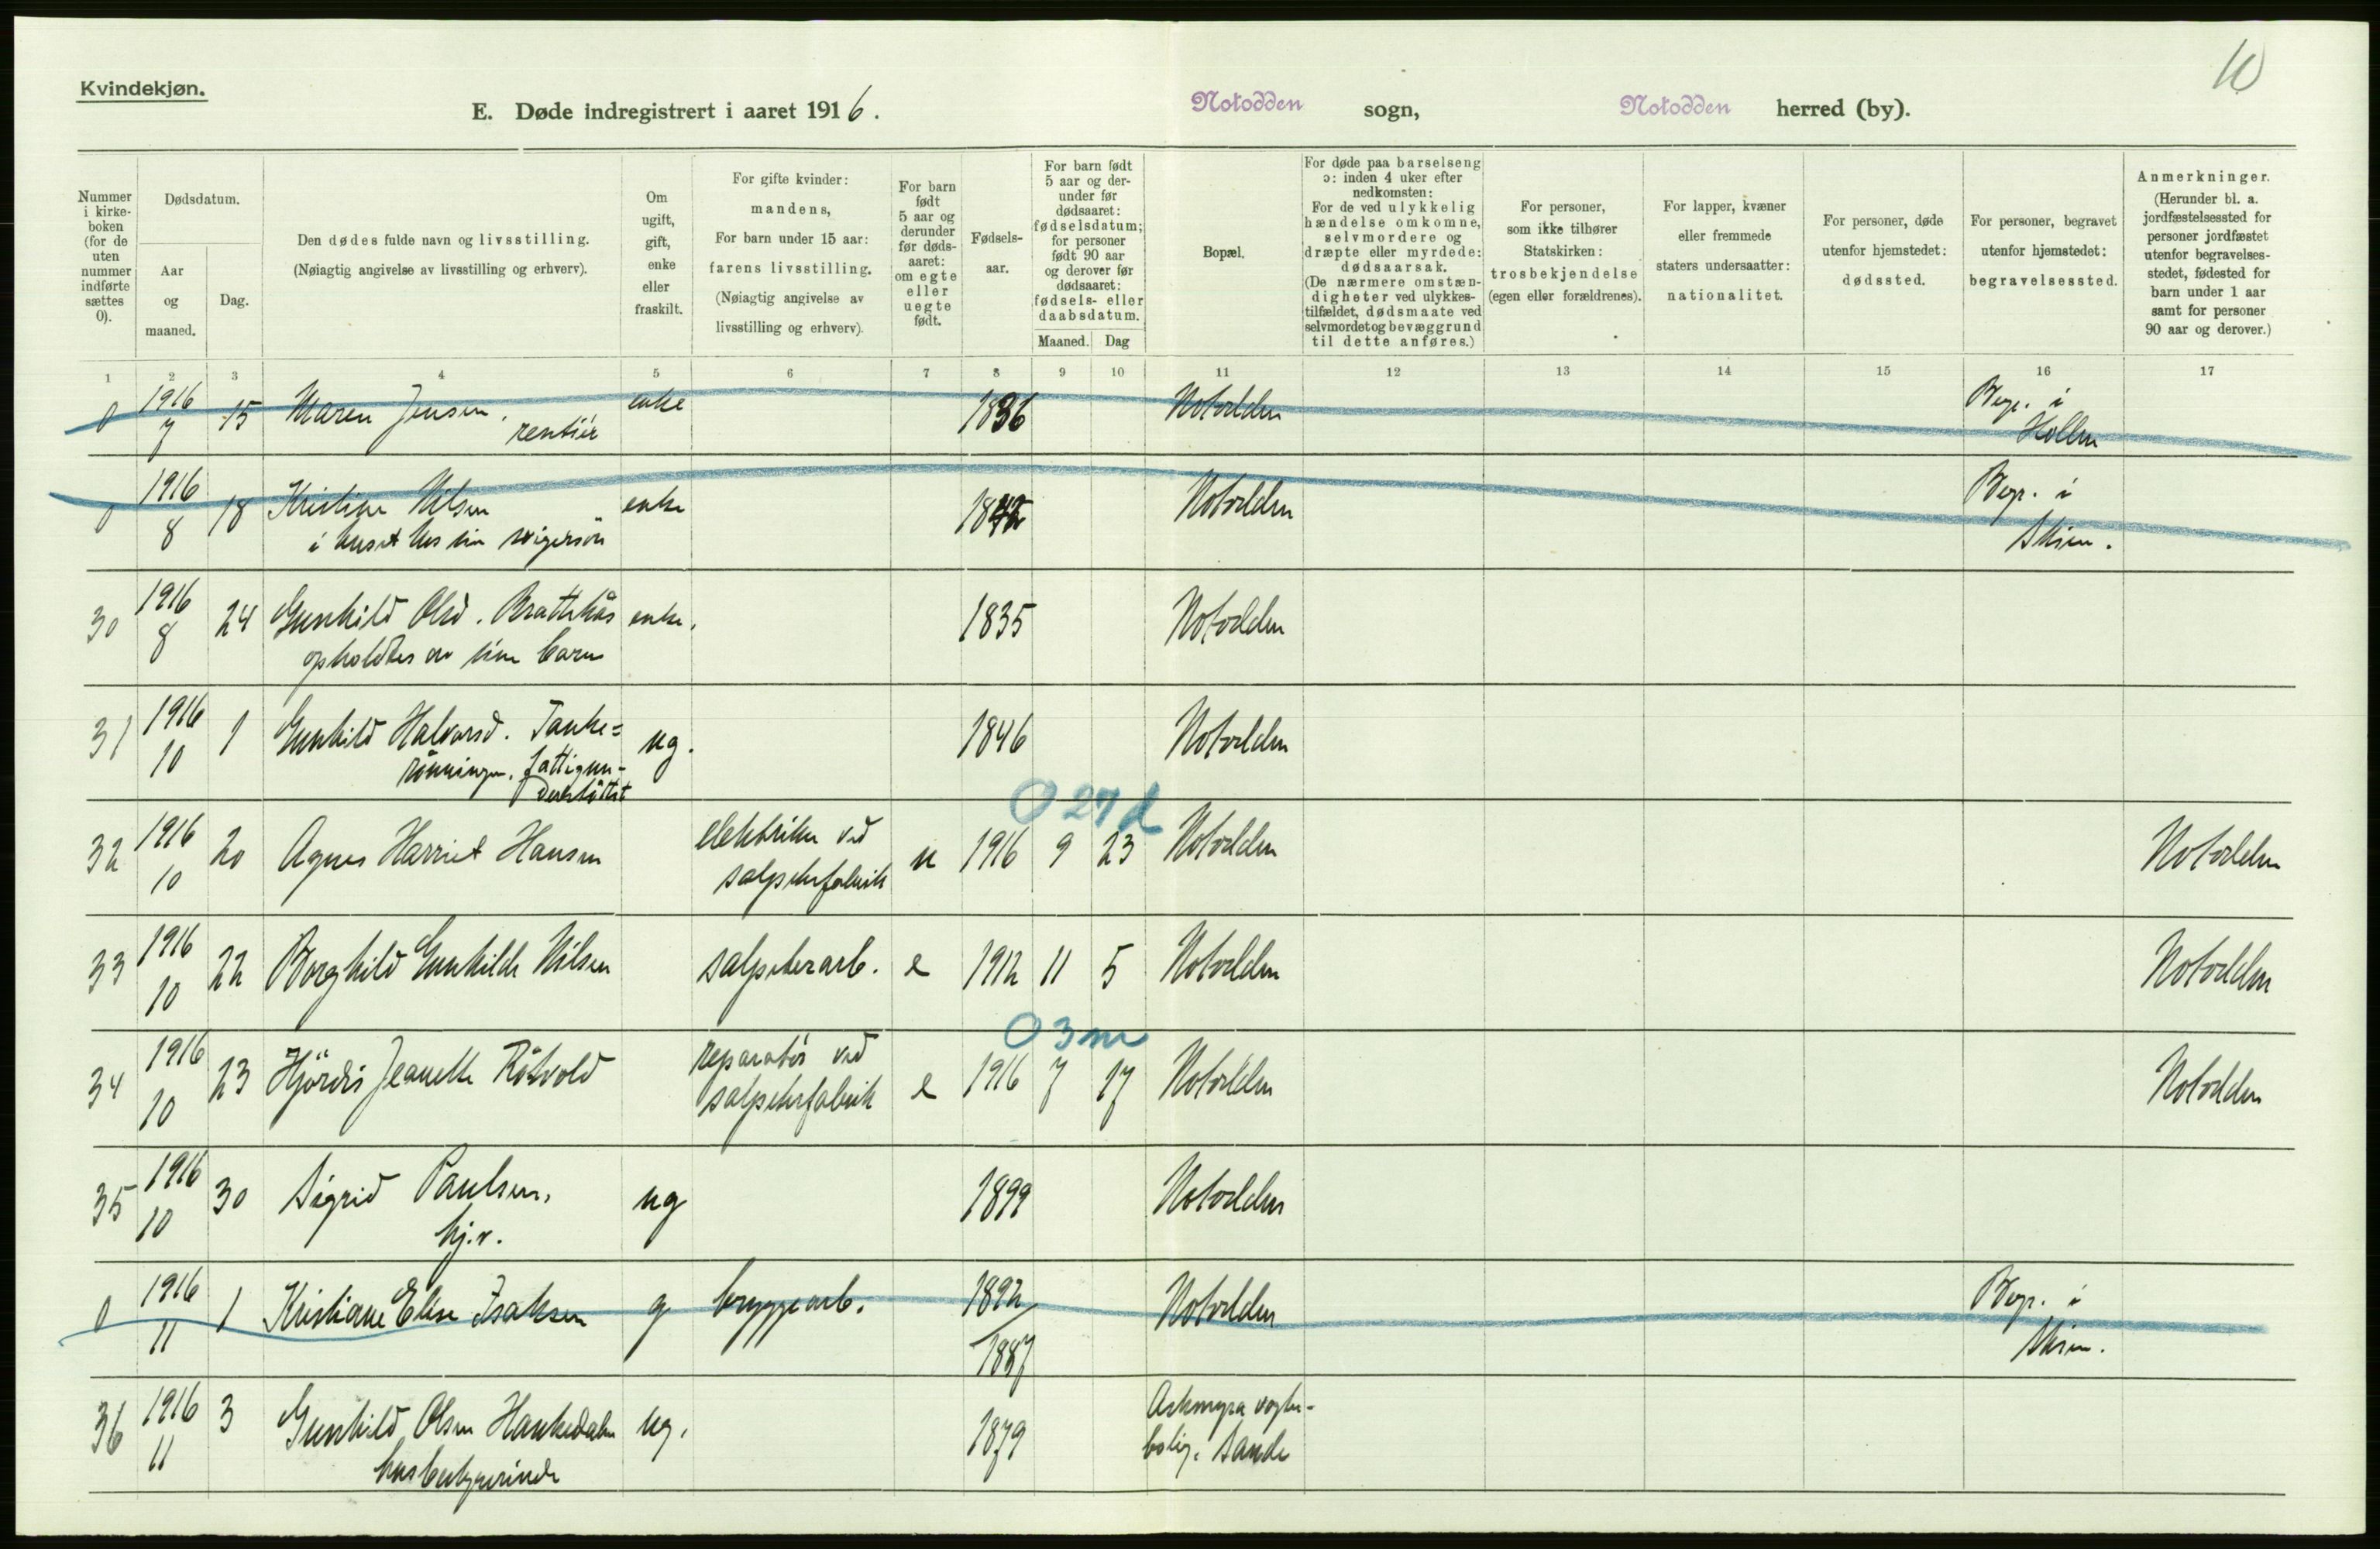 10
Kvindekjøn.
E. Døde indregistrert i aaret 1916.
Notodden sogn,
Notodden herred (by).
Nummer i kirkeboken (for de uten nummer indførte sættes 0).
Dødsdatum.
Aar og maaned.
Dag.
Den dødes fulde navn og livsstilling.
(Nøiagtig angivelse av livsstilling og erhverv).
Om ugift, gift, enke eller fraskilt.
For gifte kvinder: mandens,
For barn under 15 aar: farens livsstilling.
(Nøiagtig angivelse av livsstilling og erhverv).
For barn født 5 aar og derunder før dødsaaret: om egte eller uegte født.
Fødselsaar.
For barn født 5 aar og derunder før dødsaaret: fødselsdatum; for personer født 90 aar og derover før dødsaaret: fødsels- eller daabsdatum.
Maaned. Dag
Bopæl.
For døde paa barselseng ɔ: inden 4 uker efter nedkomsten:
For de ved ulykkelig hændelse omkomne, selvmordere og dræpte eller myrdede: dødsaarsak.
(De nærmere omstændigheter ved ulykkestilfældet, dødsmaate ved selvmordet og bevæggrund til dette anføres.)
For personer, som ikke tilhører Statskirken: trosbekjendelse (egen eller forældrenes).
For lapper, kvæner eller fremmede staters undersaatter: nationalitet.
For personer, døde utenfor hjemstedet: dødssted.
For personer, begravet utenfor hjemstedet: begravelsessted.
Anmerkninger.
(Herunder bl. a. jordfæstelsessted for personer jordfæstet utenfor begravelsesstedet, fødested for barn under 1 aar samt for personer 90 aar og derover.)
1 2 3 4 5 6 7 8 9 10 11 12 13 14 15 16 17
0 1916 7 15 Maren Jensen, rentiér enke 1836 Notodden Begr. i Hollen
0 1916 8 18 Kristine Nilsen i huset hos sin svigersön enke 1842 Notodden Begr. i Skien.
30 1916 8 24 Gunhild Olsd. Brattekås opholdtes av sine barn enke. 1835 Notodden
31 1916 10 1 Gunhild Halvorsd. Tanke=rönningen. fattigunderstöttet ug. 1846 Notodden
0 27 d
32 1916 10 20 Agnes Harriet Hansen elektriker ved salpeterfabrik u 1916 9 23 Notodden Notodden
33 1916 10 22 Borghild Gunhilde Nilsen salpeterarb. e 1912 11 5 Notodden Notodden
0 3 m
34 1916 10 23 Hjördis Jeanette Rötvold reparatör ved salpeterfabrik e 1916 7 17 Notodden Notodden
35 1916 10 30 Sigrid Paulsen, hj.v. ug 1899 Notodden
0 1916 11 1 Kristiane Elise Isaksen g bryggearb. 1892/1887 Notodden Begr. i Skien.
36 1916 11 3 Gunhild Olsen Haukedalen husbestyrerinde ug. 1879 Askmyra vogterbolig. Sande